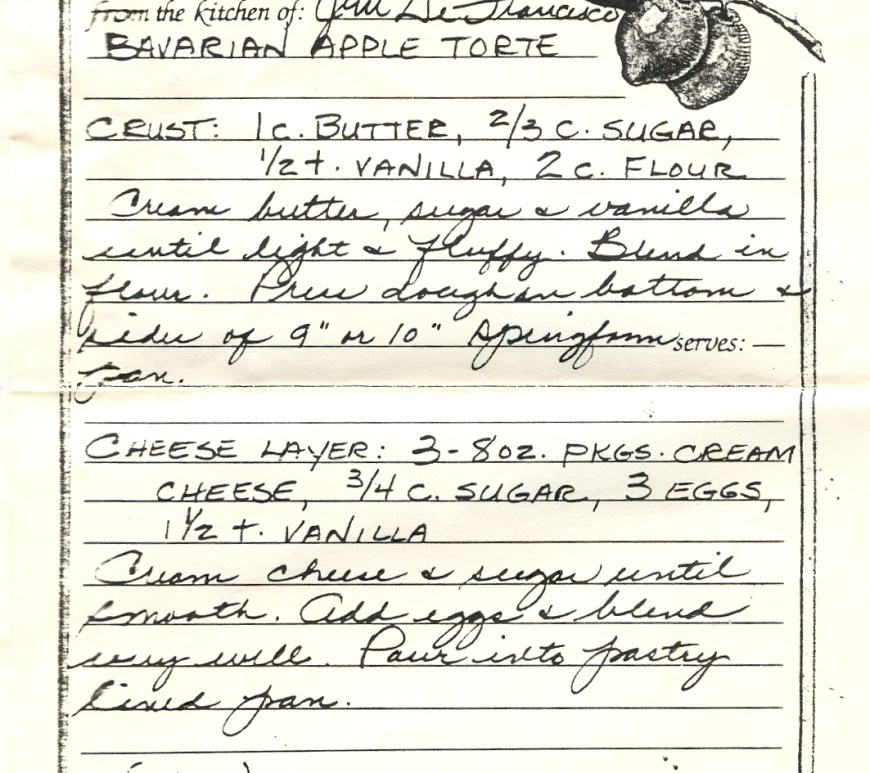 from the kitchen of: Jim De Francisco
BAVARIAN APPLE TORTE
CRUST: 1 C. BUTTER, 2/3 C. SUGAR,
1/2 t. VANILLA, 2 C. FLOUR
Cream butter, sugar & vanilla
until light & fluffy. Blend in
flour. Press dough on bottom &
sides of 9" or 10" springform serves: —
pan.
CHEESE LAYER: 3-8 OZ. PKGS. CREAM
CHEESE, 3/4 C. SUGAR, 3 EGGS,
1 1/2 t. VANILLA
Cream cheese & sugar until
smooth. Add eggs & blend
very well. Pour into pastry
lined pan.